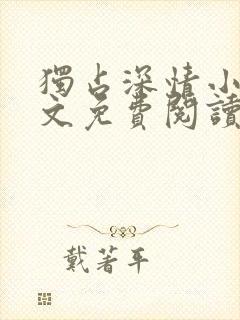 獨占深情小
文免費閱讀
戴著平